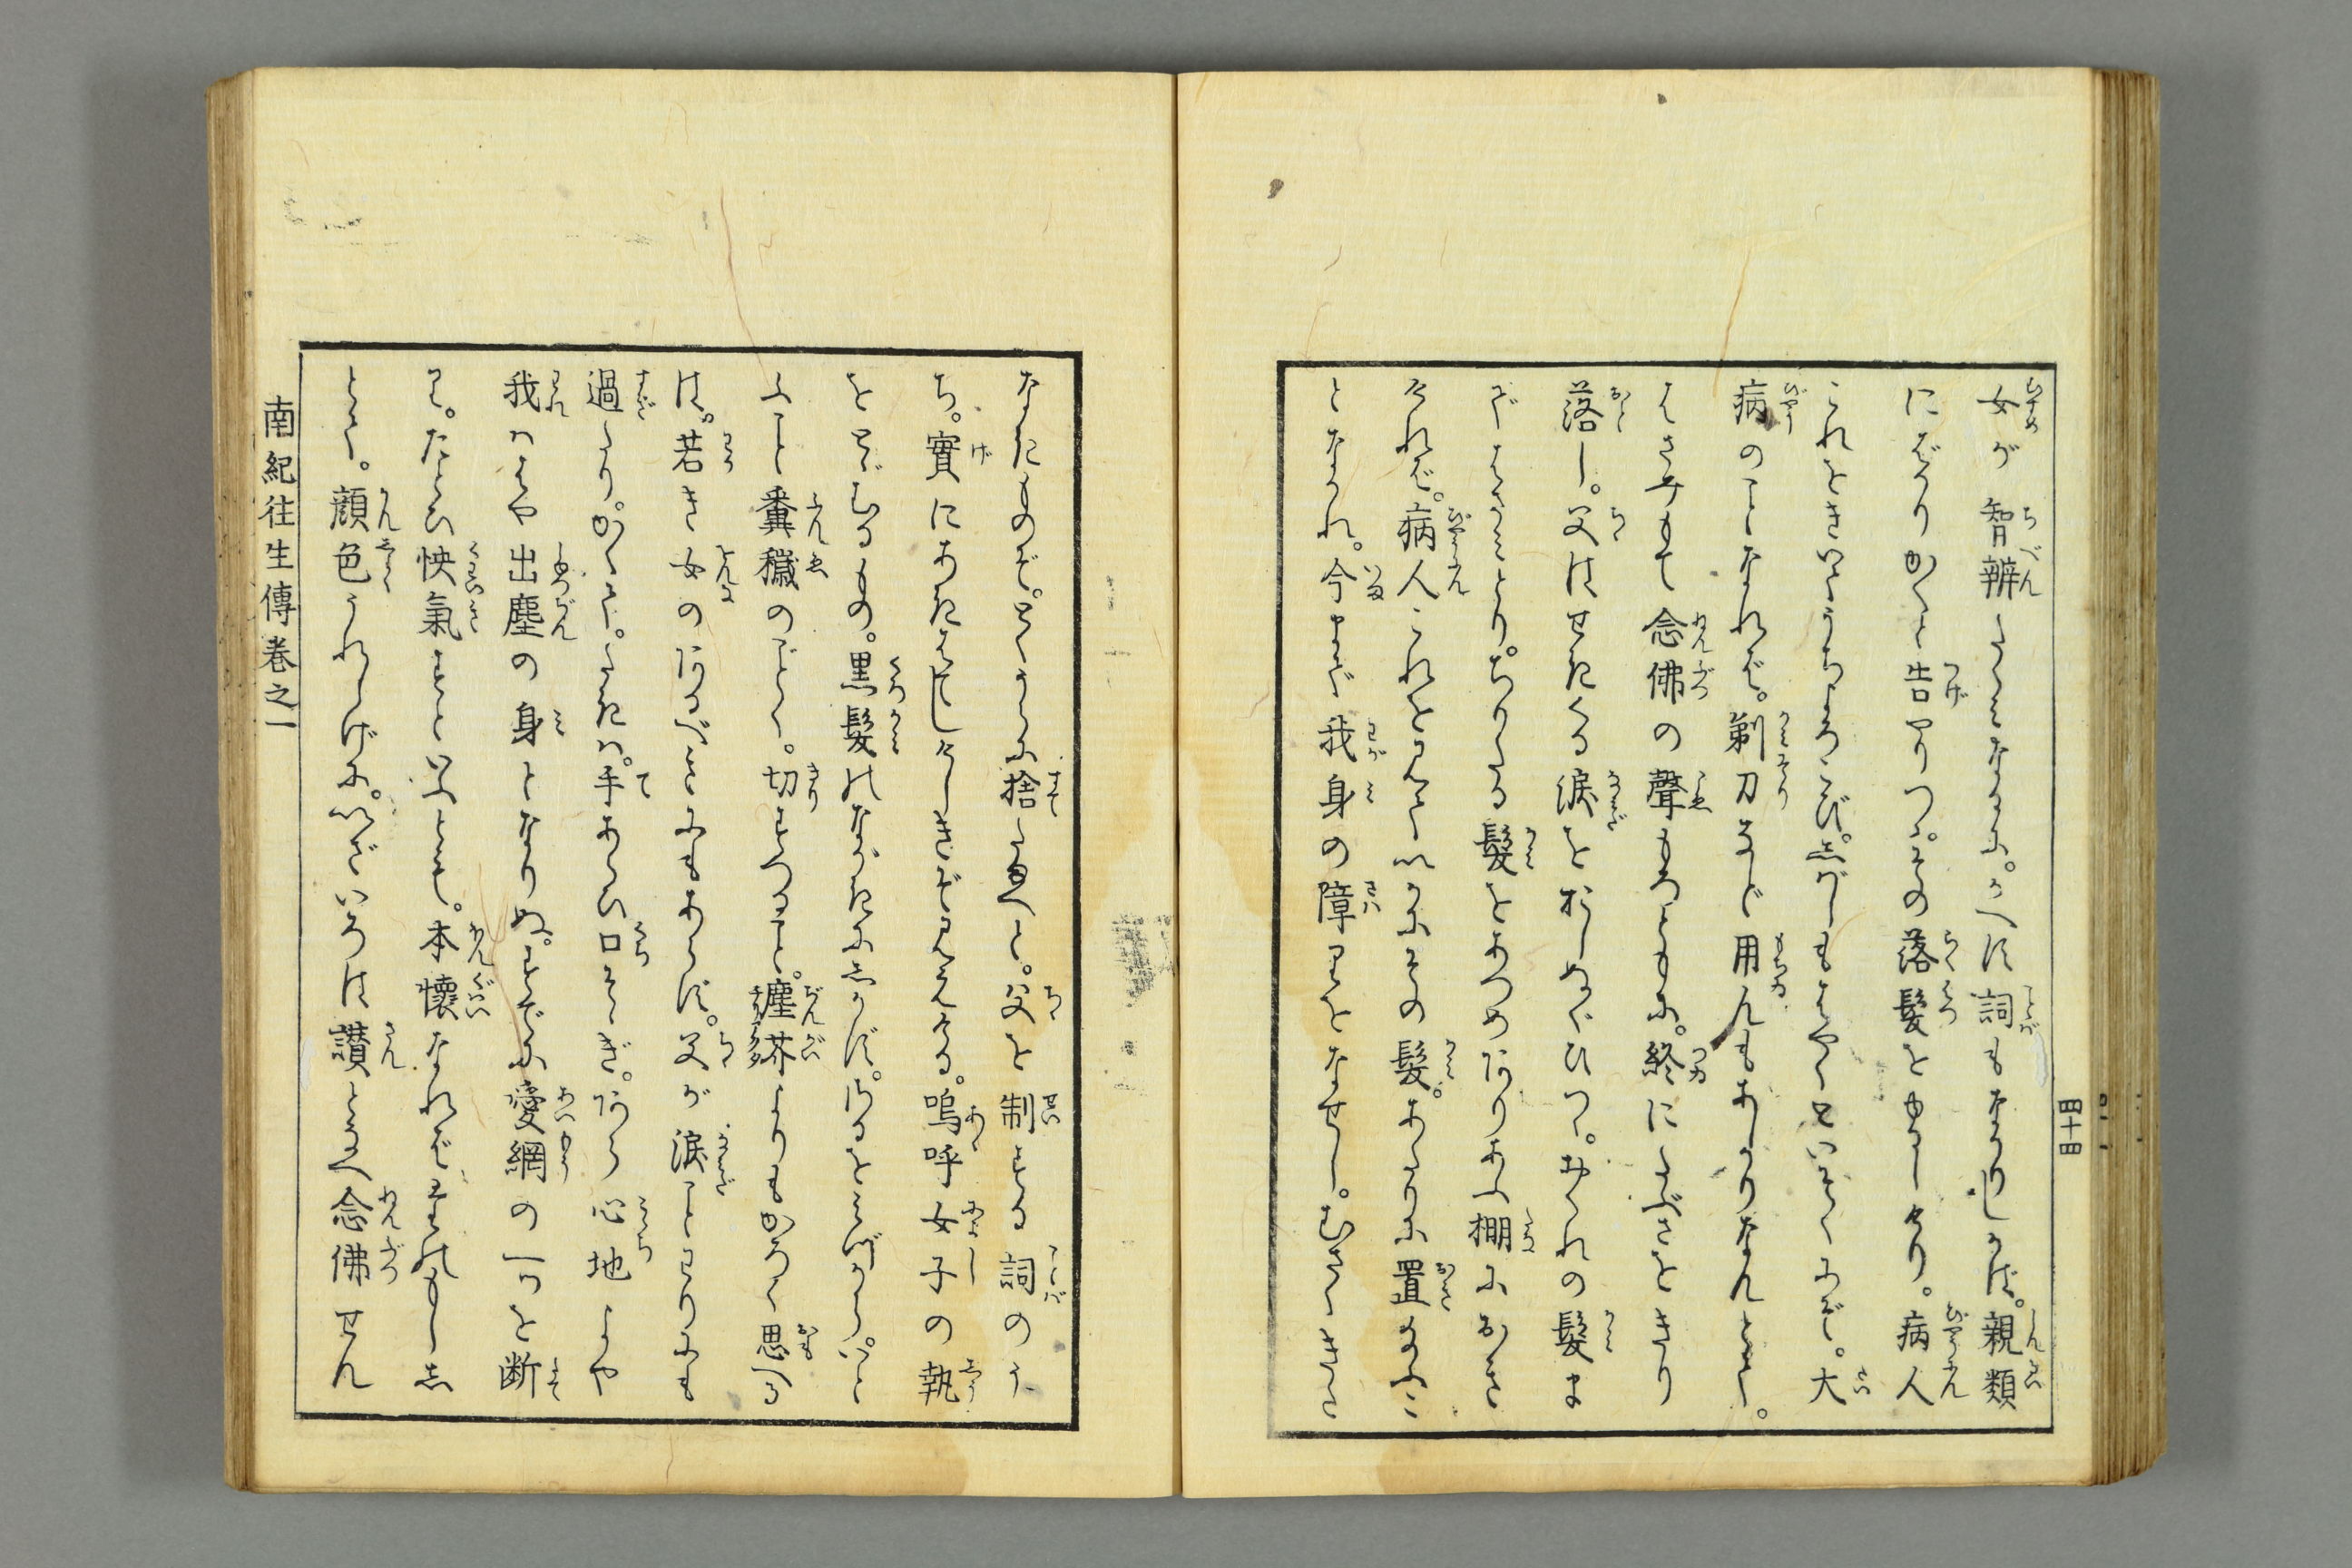 女が智辨たくみなるに。かへす詞もなかりしかば。親類
にばかりかくと告やりつ。その落髮をゆるしけり。病人
これをきいてうちよろこび。しばしもはやくといそぐにぞ。大
病のことなれば。剃刀など用んもあしかりなんとて。
はさみもて念佛の聲もろともに。終にたぶさをきり
落し。父はせきくる涙をおしぬぐひつ。おくれの髮ま
ではさみとり。ちりたる髮をあつめつゝ棚におき
ければ。病人これを見ていかにその髮。あたりに置給ふこ
となかれ。今まで我身の障りをなせし。むさくきたな
四十四
なきものぞ。とくうらに捨たまへと。父を制する詞のう
ち。實にあきはてしけしきぞ見えける。嗚呼女子の執
をとゞむるもの。黒髮のながきにしかず。けるをみづから。いと
ふこと糞穢のごとく。切すつること。塵芥よりもかろく思へる
は。若き女のあるべきにもあらず。父が涙ことわりにも
過たり。かくて。たきは。手あらひ口そゝぎ。あら心地よや
我はゝや出塵の身となりぬ。すでに愛網の一つを断
り。たとひ快氣すといふとも。本懷なればまたのもし
とて。顔色うれしげに。いざいろは讃となへ念佛せん
南紀往生傳卷之一